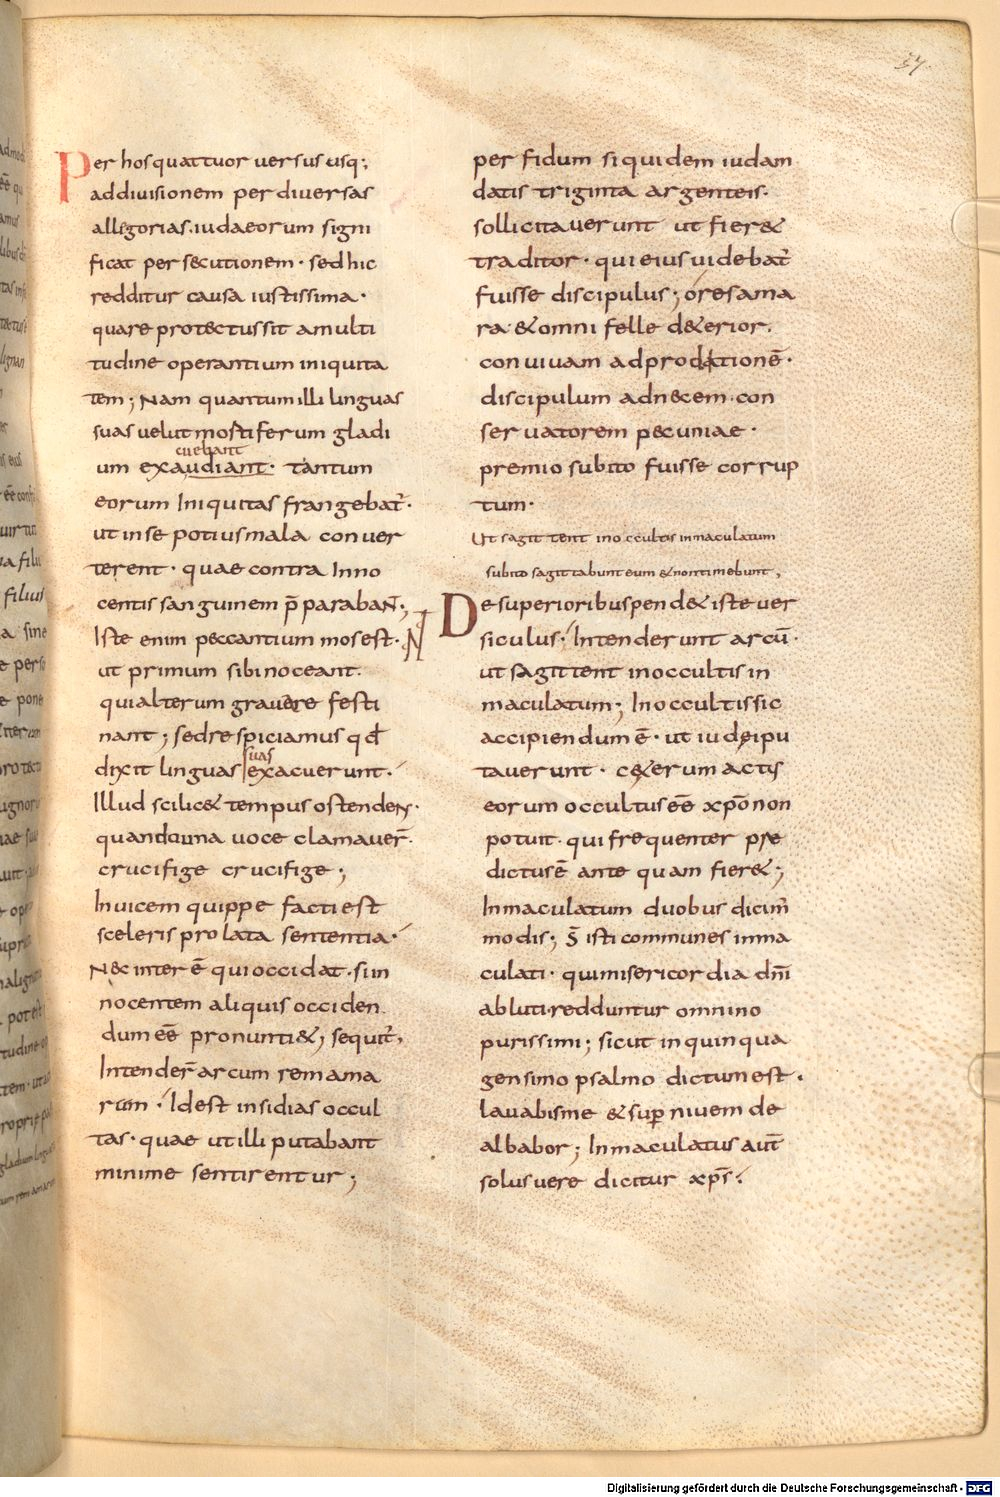 57.
Per hos quattuor versus usq;
ad divisionem per diversas
allegorias. iudaeorum signi
ficat persecutionem · sed hic
redditur causa iustissima ·
quare protectus sit a multi
tudine operantium iniquita
tem; Nam quantum illi linguas
suas velut mostiferum gladi
cuebant
um exaudiant · tantum
eorum Iniquitas frangebat᷑ ·
ut in se potius mala conver
terent · quae contra Inno
centis sanguinem p̄parabant;
Iste enim peccantium mos est ·
ut primum sibi noceant.
qui alterum gravare festi
nant; sed respiciamus qd̄
suas
dixit linguas exacuerunt ·
Illud scilic& tempus ostendens ·
quando una voce clamaver̄ ·
crucifige crucifige;
Invicem quippe facti est
sceleris prolata sententia ·
N& inter ē qui occidat · si in
nocentem aliquis occiden
dum eē̄ pronunti&; sequit᷑,
Intender̄ arcum rem ama
ram · Id est insidias occul
tas · quae ut illi putabant
minime sentirentur;
perfidum siquidem iudam
datis triginta argenteis ·
sollicitaverunt ut fier&
traditor · qui eius videbat᷑
fuisse discipulus; ó res ama
ra · & omni felle d&erior.
convivam ad proditionē ·
discipulum ad necem · con
servatorem pecuniae ·
premio subito fuisse corrup
tum ·
Ut sagittent in occultis inmaculatum
subito sagittabunt eum & non timebunt,
De superioribus pend& iste ver
siculus · Intenderunt arcū ·
ut sagittent in occultis in
maculatum; In occultis sic
accipiendum ē · ut iudei pu
taverunt · c&erum actis
eorum occultus eē̄ xp̄o non
potuit · qui frequenter prę
dictus ē ante quam fier&;
Inmaculatum duobus dicim᷑
modis; S̄ isti communes inma
culati · qui misericordia dn̄i
abluti · redduntur omnino
purissimi; sicut in quinqua
gensimo psalmo dictum est ·
lavabis me & sup nivem de
albabor; Inmaculatus aut̄
solus vere dicitur xp̄s ·
Digitalisierung gefördert durch die Deutsche Forschungsgemeinschaft - DFG